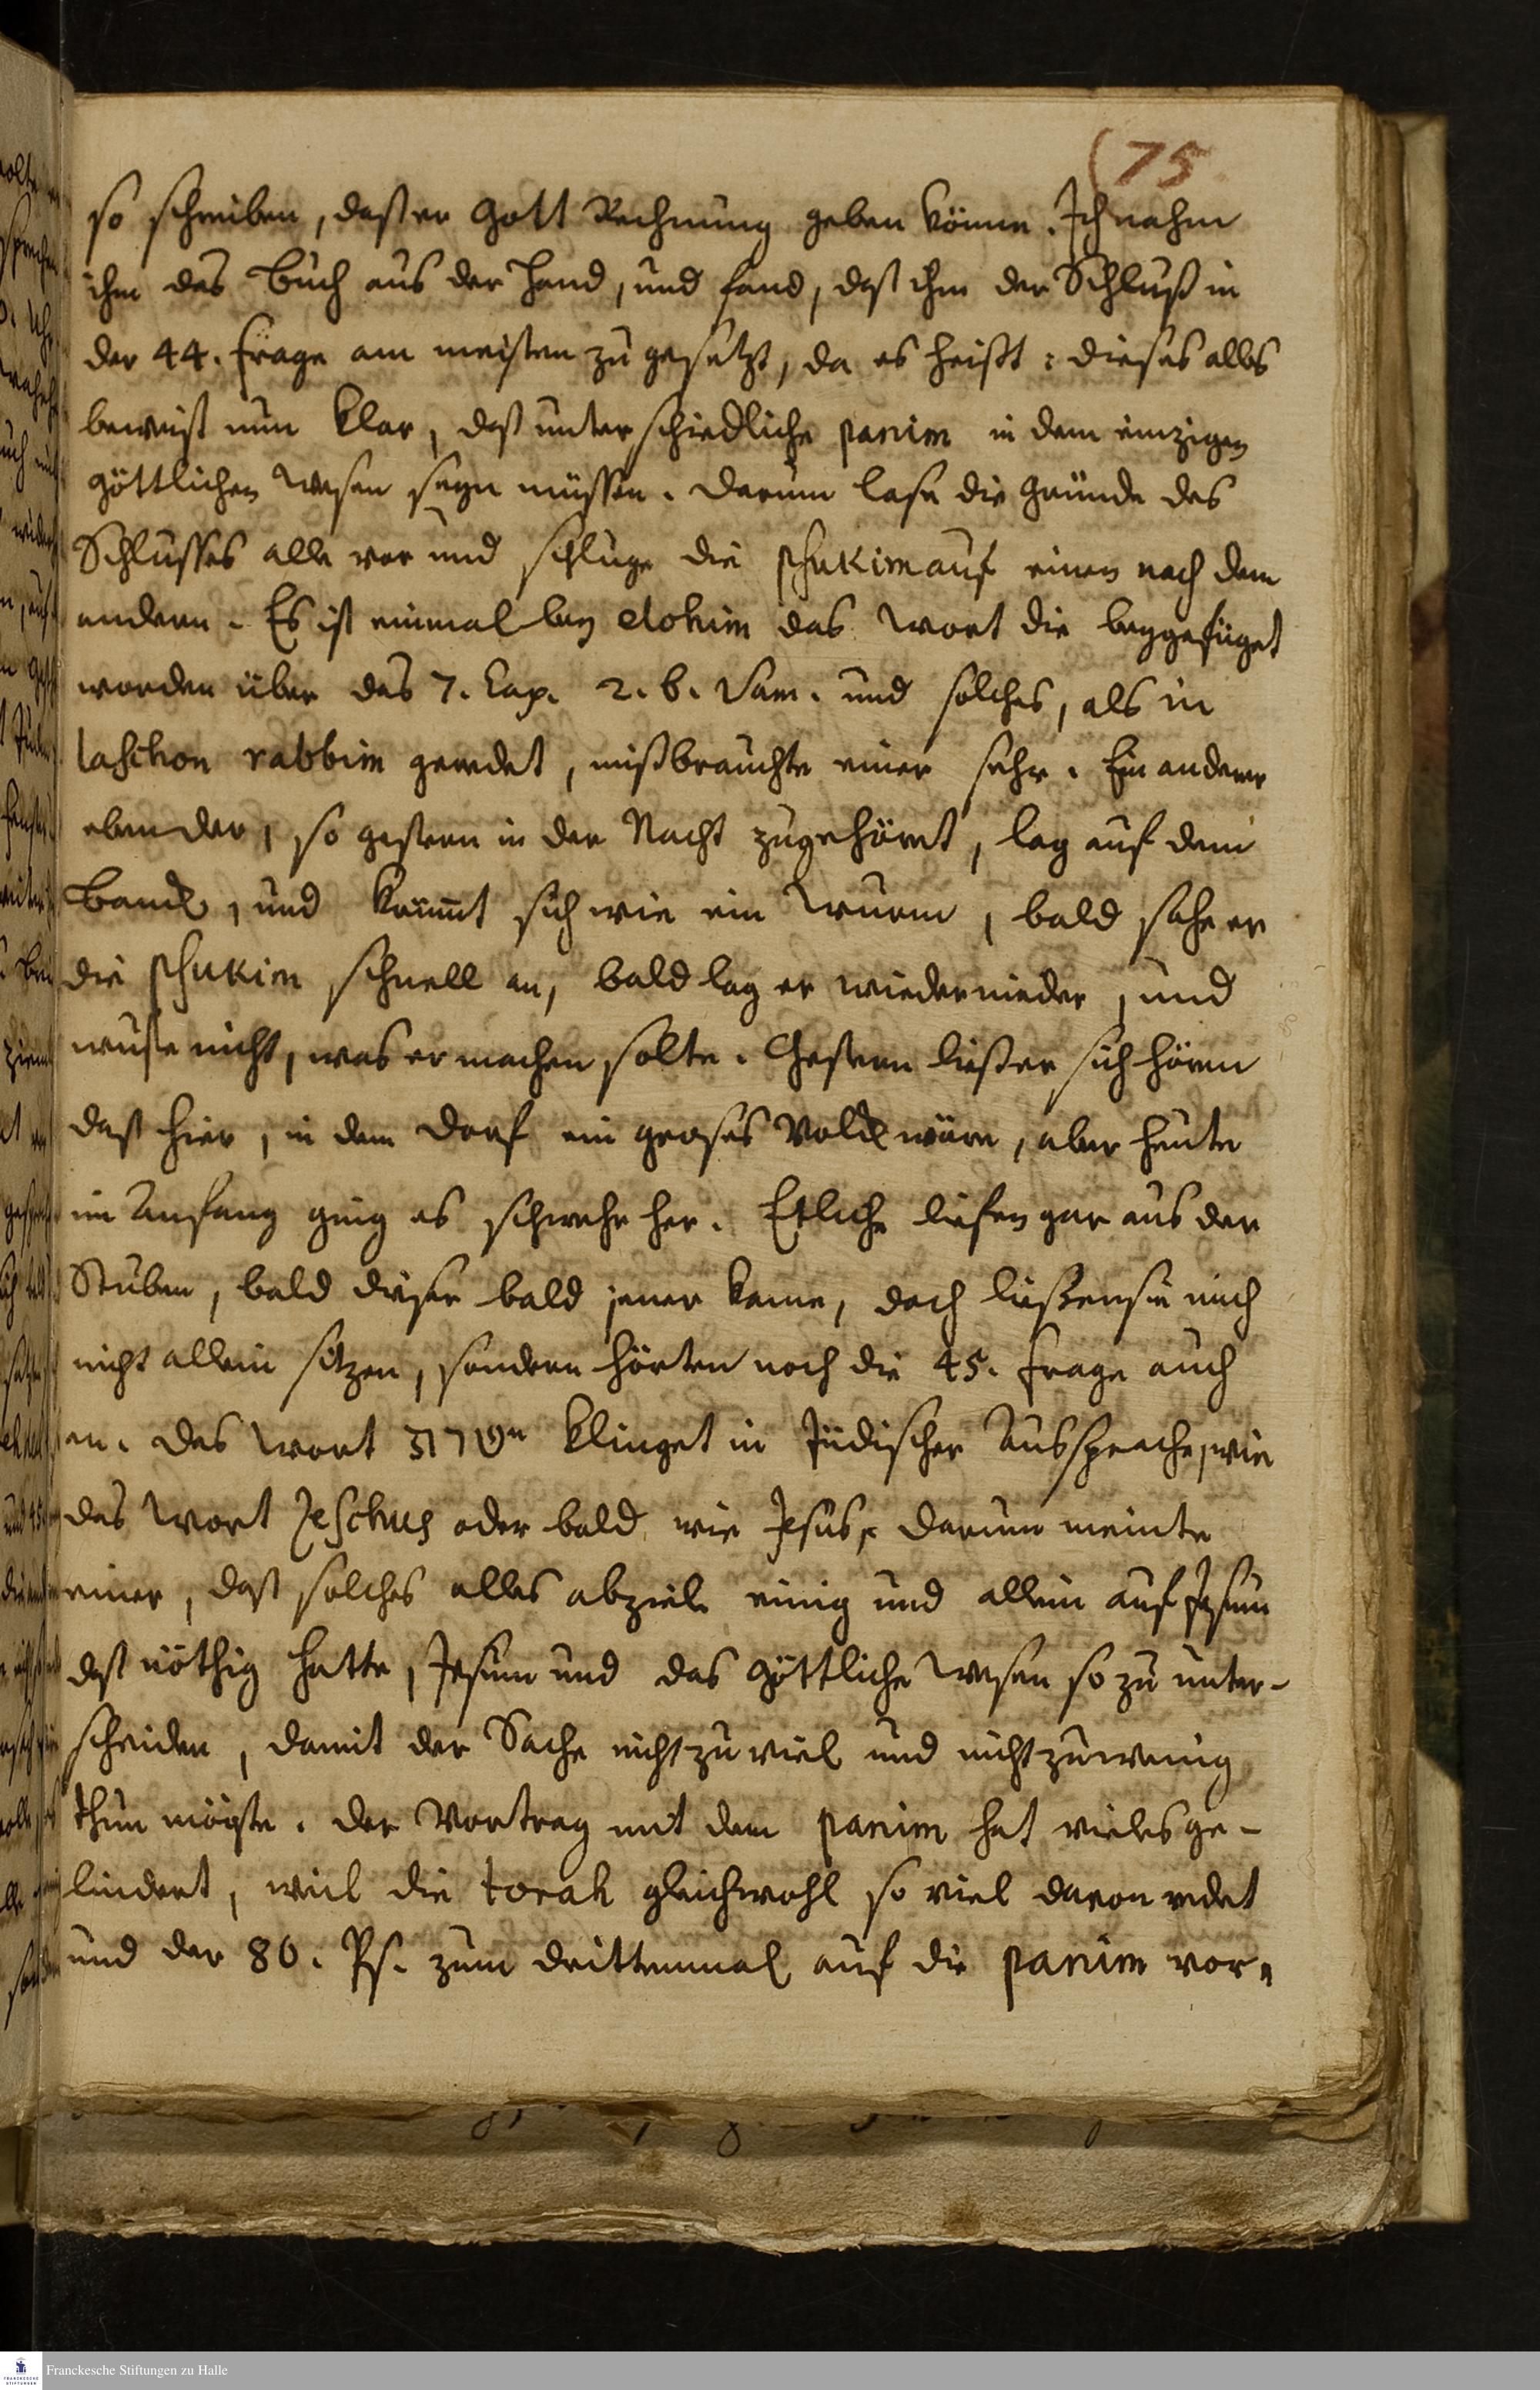 (75
so schreiben, daß er Gott Rechnung geben könne. Ich nahm
ihm das Buch aus der Hand, und fand, daß ihm der Schluß in
der 44. Frage am meisten zu gesetzt, da es heißt: dieses alles
beweist nun klar, daß unterschiedliche panim in dem einzigen
göttlichen Wesen seyn müssen. Darum lase die Gründe des
Schlusses alle vor und schluge die phukim auf einen nach dem
andern. Es ist einmal bey elohim das Wort die beygefüget
worden über das 7. Cap. 2. b. Sam. und solches, als in
laschon rabbim geredet, mißbrauchte einer sehr. Ein anderer
eben der, so gestern in der Nacht zugehöret, lag auf dem
Banck, und krümt sich wie ein Wurm, bald sahe er
die phukim schnell an, bald lag er wieder nieder, und
wuste nicht, was er machen solte. Gestern ließ er sich hören
daß hier, in dem Dorf ein groses Volck wäre, aber heute
im Anfang ging es schwehr her. Etliche liefen gar aus der
Stuben, bald dieser bald jener kame, doch ließen sie mich
nicht allein sitzen, sondern hörten noch die 45. Frage auch
an. das Wort klinget in Jüdischer Aussprache, wie
das Wort Jeschus oder bald wie Jesus, darum meinte
einer, daß solches alles abziele einig und allein auf Jesum
daß nöthig hatte, Jesum und das göttliche Wesen so zu unter-
scheiden, damit der Sache nicht zu viel und nicht zu wenig
thun mögte. Der Vortrag mit dem panim hat vieles ge-
lindert, weil die torah gleichwohl so viel davon redet
und der 80. Ps. zum drittenmal auf die panim vor-
Franckesche Stiftungen zu Halle